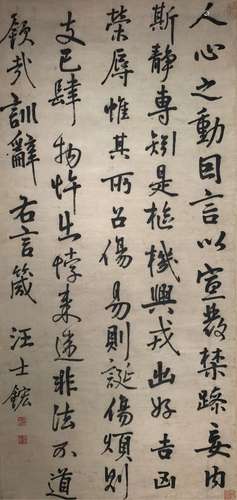 人心之動因言以宣發禁躁妄内
斯静專矧是樞機興戎出好吉凶
榮辱惟其所召傷易則誕傷煩則
支己肆物忤出悖来違非法不道
欽哉訓辭右言箴 汪士鋐